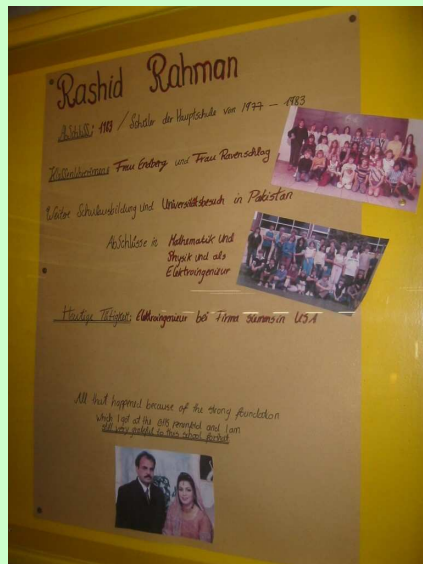 Rashid Rahman
Abschluß: 1983 / Schüler der Hauptschule von 1977 – 1983
Klassenlehrerinnen: Frau Endberg und Frau Ravenschlag
Weitere Schulausbildung und Universitätsbesuch in Pakistan
Abschlüsse in Mathematik und
Physik und als
Elektroingenieur
Heutige Tätigkeit: Elektroingenieur bei Firma in USA
All that happened because of the strong foundation
which I got at the and I am
still very grateful to this school